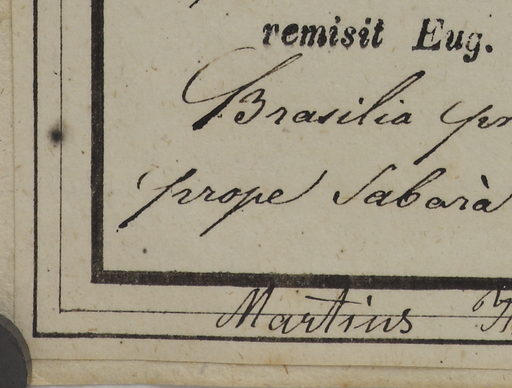 remisit Eug.
Brasilia
prope Sabarà
Martius